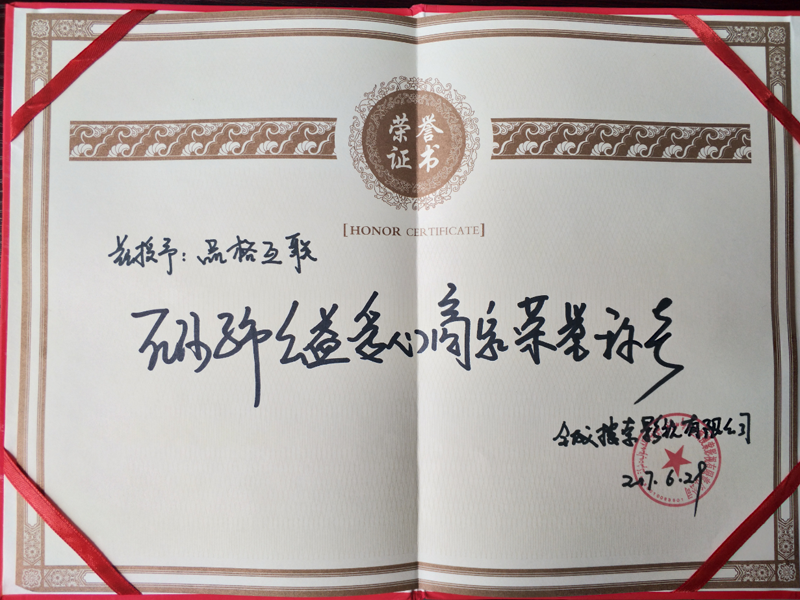 荣誉
证书
[HONOR CERTIFICATE]
兹授予：品格互联
公益爱心商家荣誉称号
全城搜索影视有限公司
2017.6.29